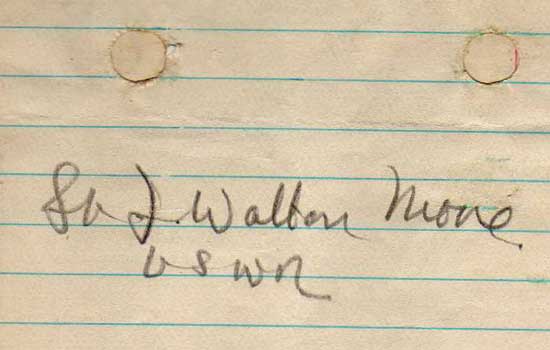 J. Walton Moore
USNR